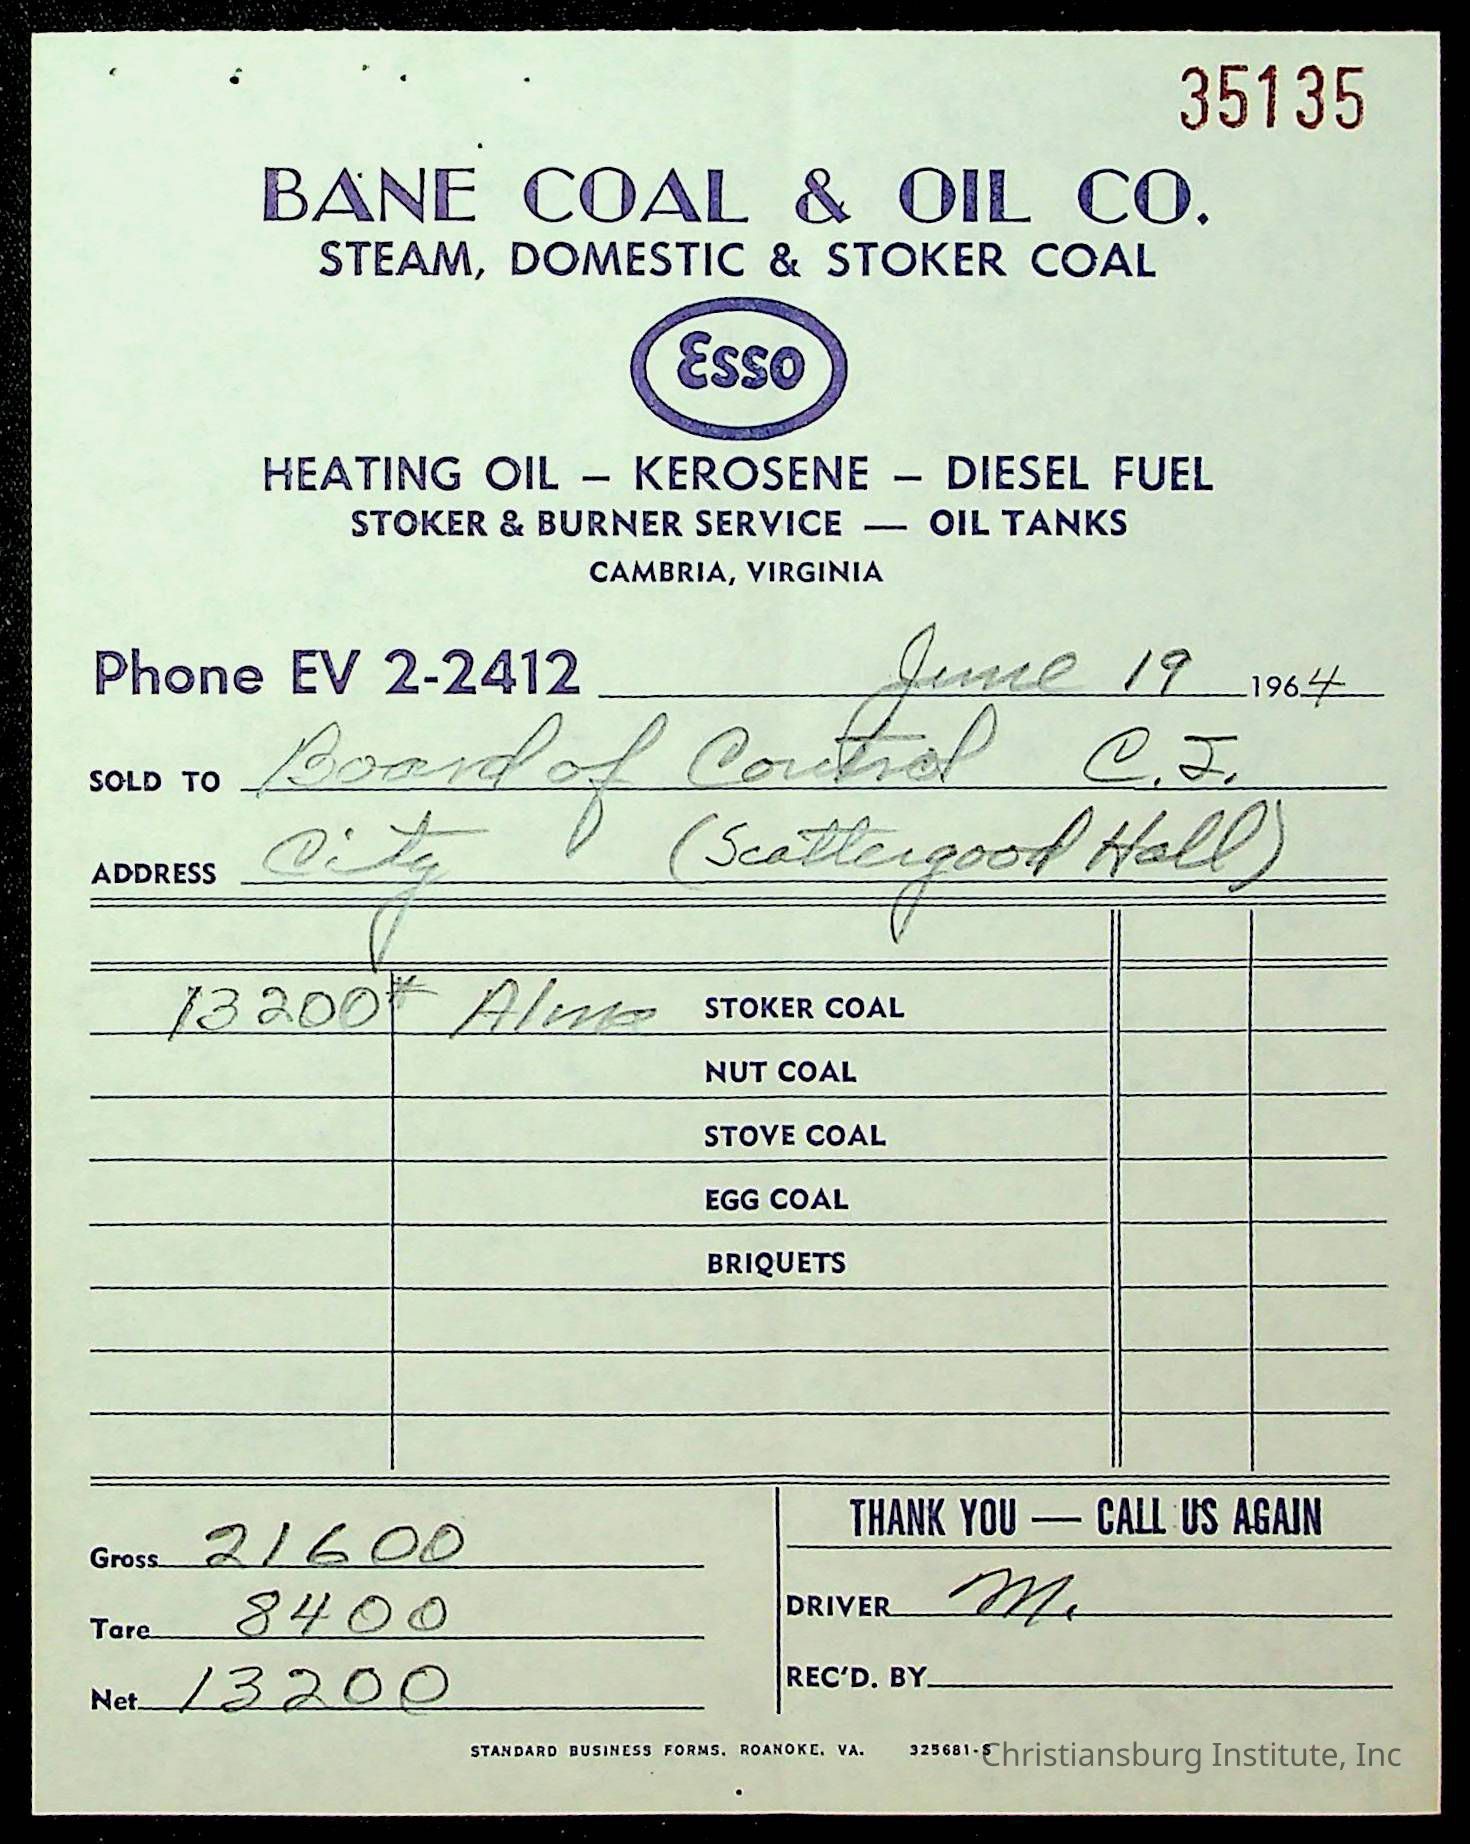 35135
BANE COAL & OIL CO.
STEAM, DOMESTIC & STOKER COAL
Esso
HEATING OIL – KEROSENE – DIESEL FUEL
STOKER & BURNER SERVICE — OIL TANKS
CAMBRIA, VIRGINIA
Phone EV 2-2412 June 19 1964
SOLD TO Board of Control C.I.
ADDRESS City (Scattergood Hall)
13200# Alma STOKER COAL
NUT COAL
STOVE COAL
EGG COAL
BRIQUETS
THANK YOU — CALL US AGAIN
Gross 21600
Tare 8400
Net 13200
DRIVER M.
REC'D. BY
STANDARD BUSINESS FORMS. ROANOKE. VA. 325681-S
Christiansburg Institute, Inc